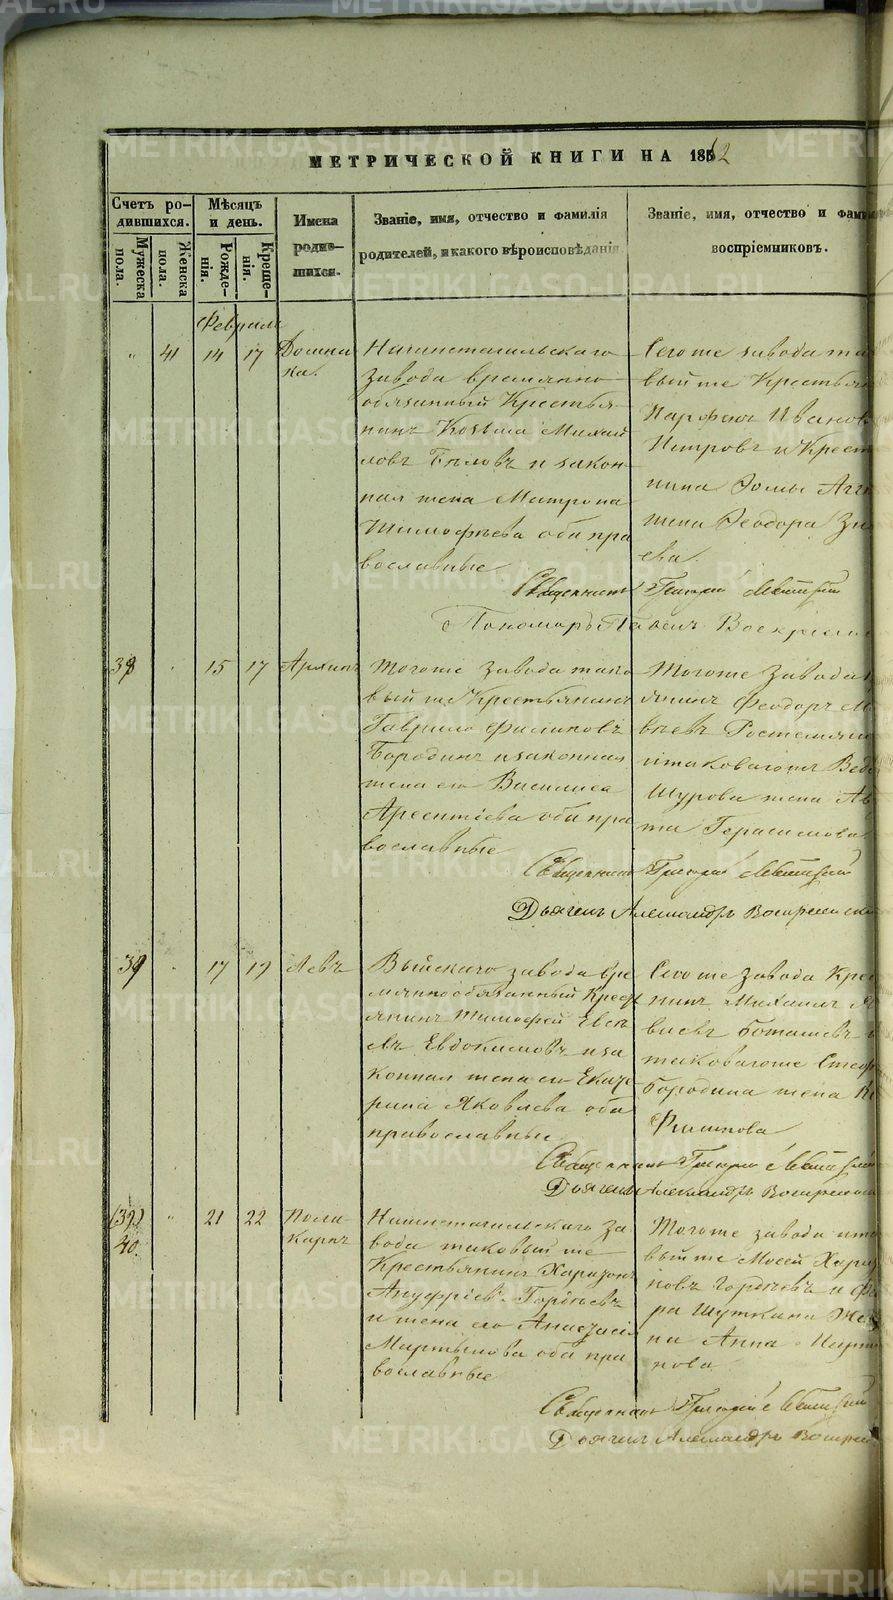 МЕТРИЧЕСКОЙ КНИГИ НА 1862
Счетъ ро-
дившихся.
Мужеска
пола.
Женска
пола.
Мѣсяцъ
и день.
Рожде-
нія.
Креще-
нія.
Имена
родив-
шихся.
Званіе, имя, отчество и фамилія
родителей, и какого вѣроисповѣданія
Званіе, имя, отчество и фам
воспріемниковъ.
Февраль
" 41 14 17 Домни
ка.
Нижнетагильскаго
завода временно
обязанный Крестья
нинъ Козьма Михай
ловъ Бѣловъ и закон
ная жена Матрона
Тимофѣева оба пра
вославные
Сегоже завода та
вый же Крестья
Парфенъ Иванов
Петровъ и Крест
нина Фомы
жена Феодора
ева.
Священникъ Григорій Левитскій
Пономарь Павелъ Воскресен
38 " 15 17
Тогоже завода тако
вый же Крестьянинъ
Гаврило Филиповъ
Бородинъ и законная
жена его Василиса
Арсентіева оба пра
вославные
Тогоже завода
янинъ Феодоръ М
вѣевъ
и таковагоже
Шурова жена Ав
та Герасимова
Священникъ Григорій Левитскій
Дьячекъ Александръ Воскресенскі
39 " 17 19 Левъ
Выйскаго завода вре
мяннообязанный Крест
янинъ Тимофей Евсѣ
въ Евдокимовъ и за
конная жена его Екате
рина Яковлева оба
православные
Сегоже завода Кре
нинъ Михаилъ
виевъ
таковагоже Стеф
Бородина жена
Филипова
Священникъ Григорій Левитскій
Дьячекъ Александръ Воскресенск
(39)
40. " 21 22 Поли
карпъ
Нижнетагильскаго за
вода таковый же
Крестьянинъ Харитонъ
Ануфріевъ Гордѣевъ
и жена его Анастасія
Мартынова оба пра
вославные
Тогоже завода и та
вый же Мосей Харит
новъ Гордѣевъ и Ф
ра Шуткина Же
на Анна Март
нова
Священникъ Григорій Левитскій
Дьячекъ Александръ Воскрес
METRIKI.GASO-URAL.RU